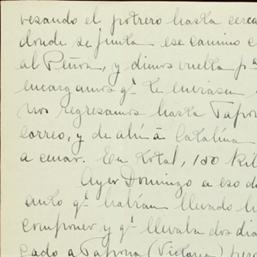 vesando el potrero hasta cerca
donde se junta ese camino c
al Peñon, y dimos vuelta pª
encargamos qᵉ te enviasen
nos regresamos hasta Tapon
correo, y de ahí á Catalina
a cenar. En total, 180 Kil
Ayer Domingo a eso d
auto qᵉ habian llevado
componer y qᵉ llevaba dos dia
cado a Tapona (Victoria) pero